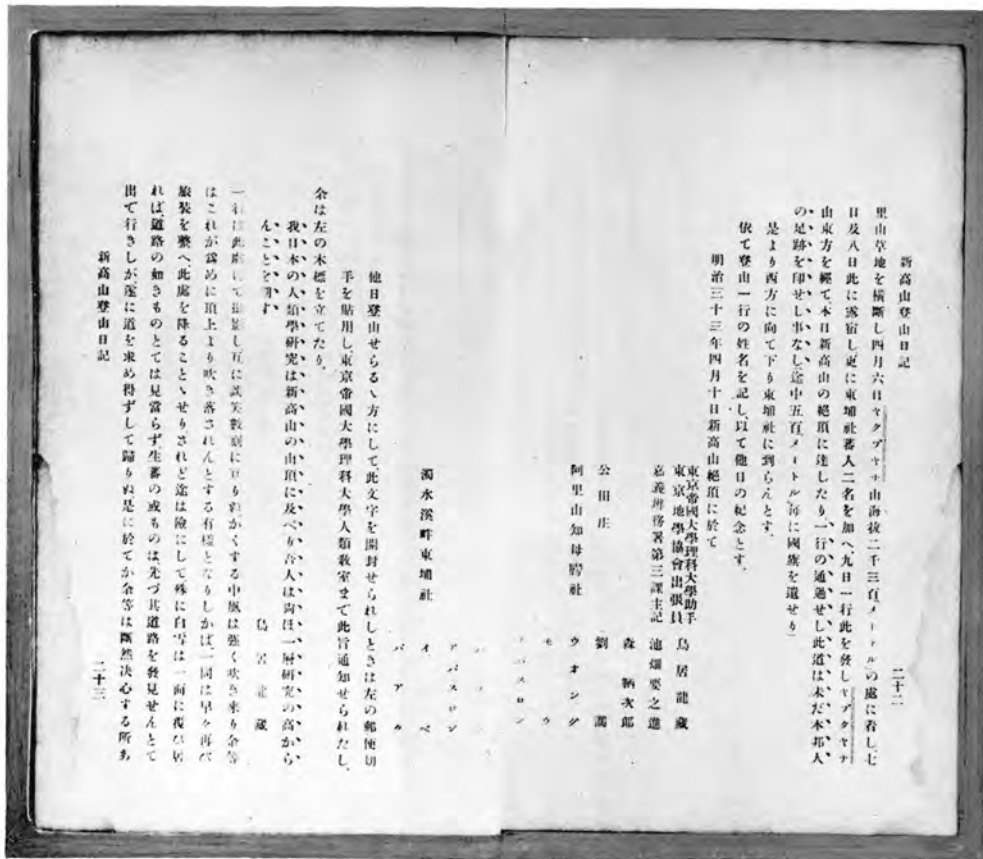 新高山登山日記
二十二
里山草地を橫斷し四月六日ヤタプヤナ山海拔二千三百メートルの處に着し、七
日及八日此に露宿し更に東埔社蕃人二名を加へ、九日一行此を發しヤプタヤナ
山東方を經て、本日新高山の絕頂に達したり、一行の通過せし此道は未だ本邦人
の足跡を印せし事なし、途中五百メートル每に國旗を遺せり」
是より西方に向て下り東埔社に到らんとす、
依て登山一行の姓名を記し、以て他日の紀念とす、
明治三十三年四月十日新高山絕頂に於て
東京帝國大學理科大學助手
東京地學協會出張員 鳥居龍藏
嘉義辨務署第三課主記 池畑要之進
森 次郎
公田庄 劉
阿里山知母朥社 ウオング
モウ
パスロン
アバスロン
濁水溪畔東埔社 イベ
バアク
他日登山せらるゝ方にして、此文字を開封せられしときは左の郵便切
手を貼用し東京帝國大學理科大學人類敎室まで此旨通知せられたし、
余は左の木標を立てたり、
我日本の人類學硏究は新高山の山頂に及べり吾人は尙ほ一層硏究の高から
んことを期す
鳥居龍藏
一行は此處にて撮影し互に談笑數刻に亘りぬかくする中風は强く吹き來り余等
はこれが爲めに頂上より吹き落されんとする有樣となりしかば、一同は早々再び
旅裝を整へ此處を降ることゝせり、されど途は險にして殊に白雪は一面に覆ひ居
れば、道路の如きものとては見當らず、生蕃の或ものは、先づ其道路を發見せんとて
出て行きしが遂に道を求め得ずして歸りぬ是に於てか余等は斷然決心する所あ
新高山登山日記
二十三